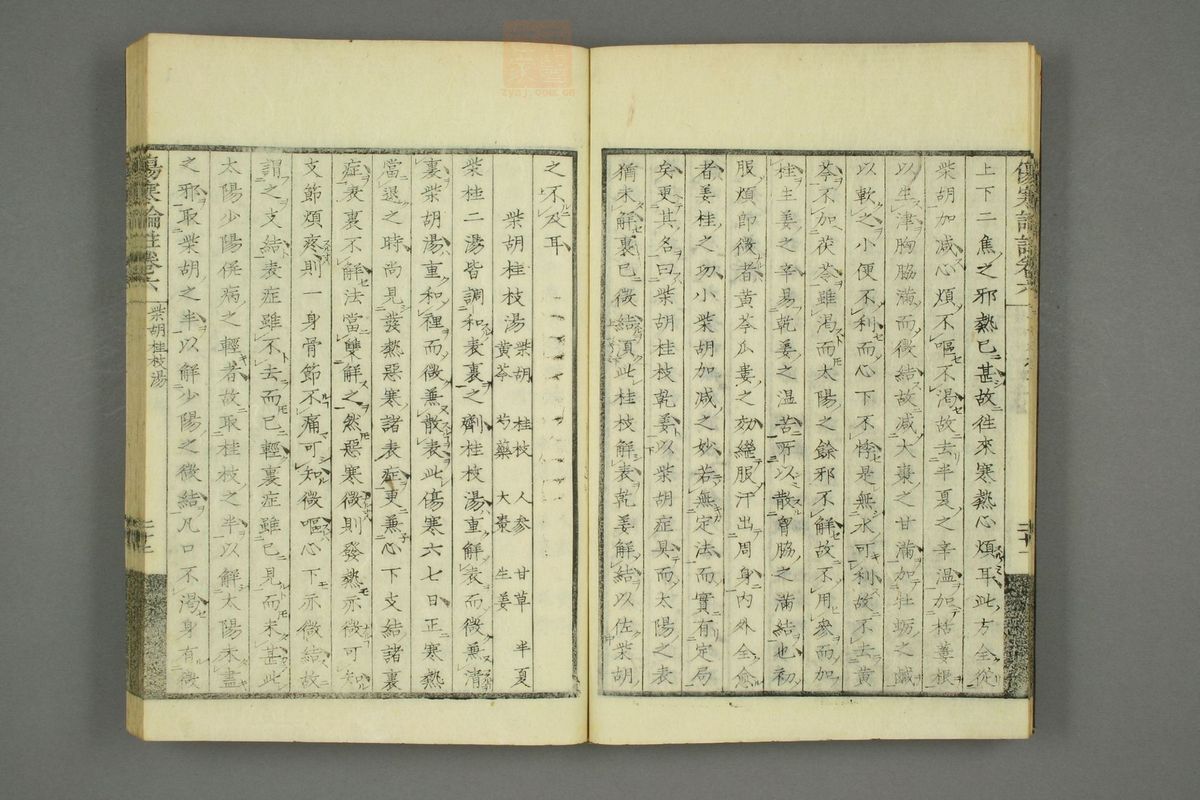 上下二焦之邪熱已甚故往來寒熱心煩耳此方全從
柴胡加減心煩不嘔不渴故去半夏之辛溫加栝蔞根
以生津胸脇滿而微結故減大棗之甘滿加牡蛎之鹹
以軟之小便不利而心下不悸是無水可利故不去黃
芩不加茯苓雖渴而太陽之餘邪不解故不用參而加
桂生姜之辛易乾姜之温苦所以散胷脇之滿結也初
服煩卽微者黃芩瓜蔞之効繼服汗出周身内外全愈
者姜桂之功小柴胡加减之妙若無定法而實有定局
矣更其名曰柴胡桂枝乾姜以柴胡症具而太陽之表
猶未解裏已微結須此桂枝解表乾姜解結以佐柴胡
之不及耳
柴胡桂枝湯 柴胡 桂枝 人参 甘草 半夏
黃芩 芍藥 大棗 生姜
柴桂二湯皆調和表裏之劑桂枝湯重解表而微兼清
裏柴胡湯重和裡而微兼散表此傷寒六七日正寒熱
當退之時尚見發熱惡寒諸表症更兼心下支結諸裏
症表裏不解法當雙解之然惡寒微則發熱亦微可知
支節煩疼則一身骨節不痛可知微嘔心下亦微結故
謂之支結表症雖不去而已輕裏症雖已見而未甚此
太陽少陽倂病之輕者故取桂枝之半以解太陽未盡
之邪取柴胡之半以解少陽之微結凡口不渴身有微
傷寒論註卷六
柴胡桂枝湯